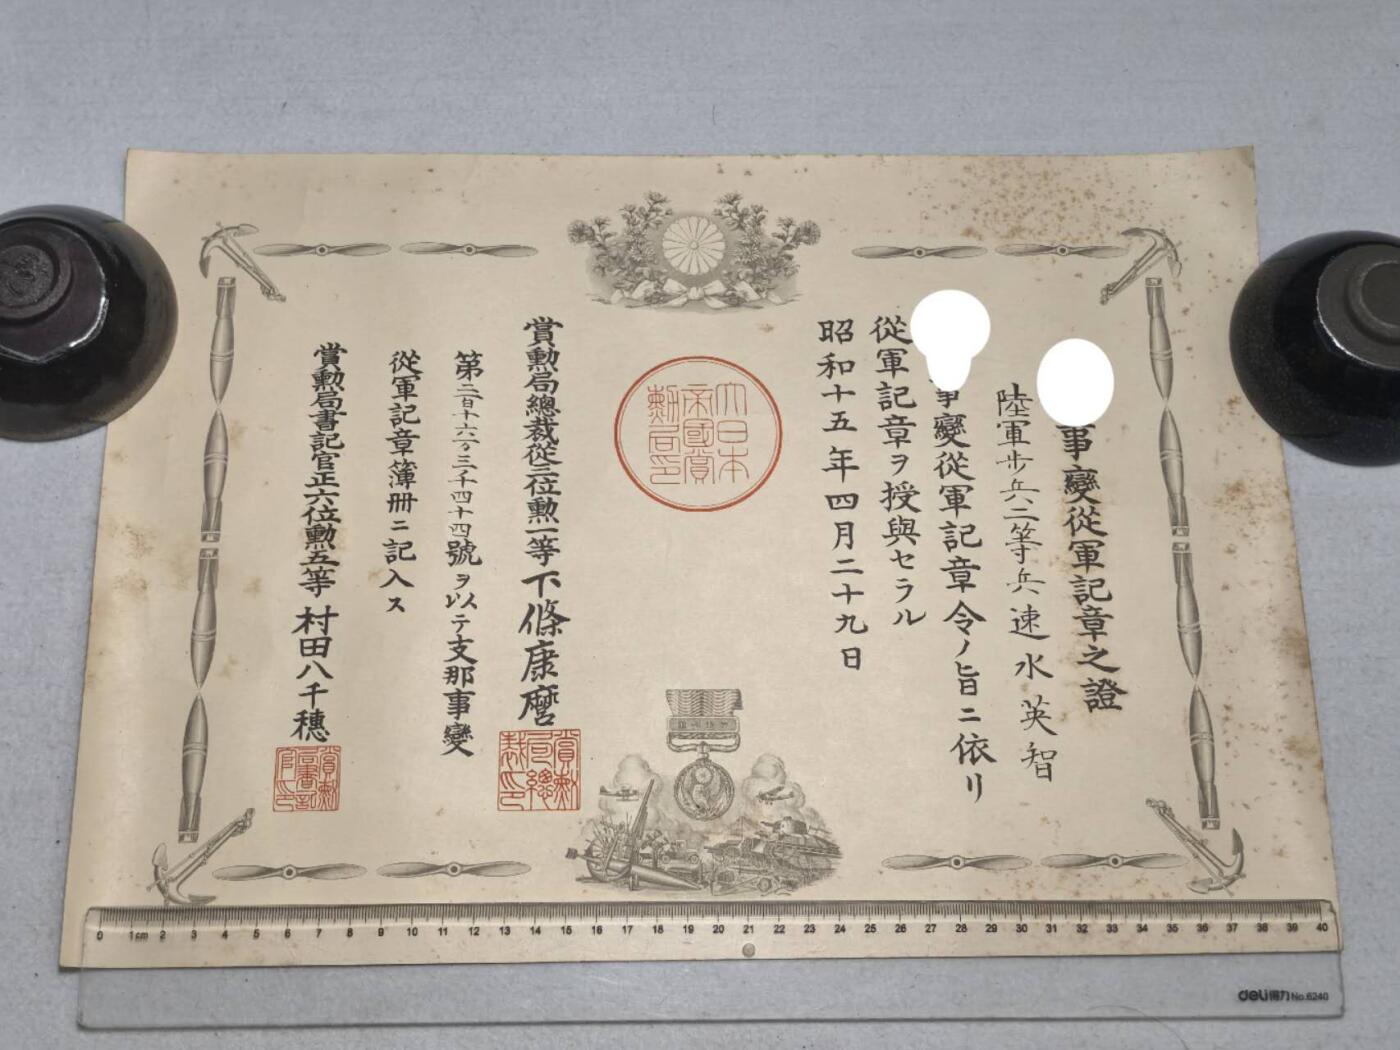 事變從軍記章之證
陸軍步兵二等兵速水英智
事變從軍記章令ノ旨ニ依リ
從軍記章ヲ授與セラル
昭和十五年四月二十九日
大日本
帝國賞
勲局印
賞勲局總裁從三位勲一等下條康麿
賞勲
局總
裁印
第二百十六万三千四十四號ヲ以テ支那事變
從軍記章簿冊ニ記入ス
賞勲局書記官正六位勲五等村田八千穗
賞勲
局書記
官印
0 1cm 2 3 4 5 6 7 8 9 10 11 12 13 14 15 16 17 18 19 20 21 22 23 24 25 26 27 28 29 30 31 32 33 34 35 36 37 38 39 40
deli得力 No.6240